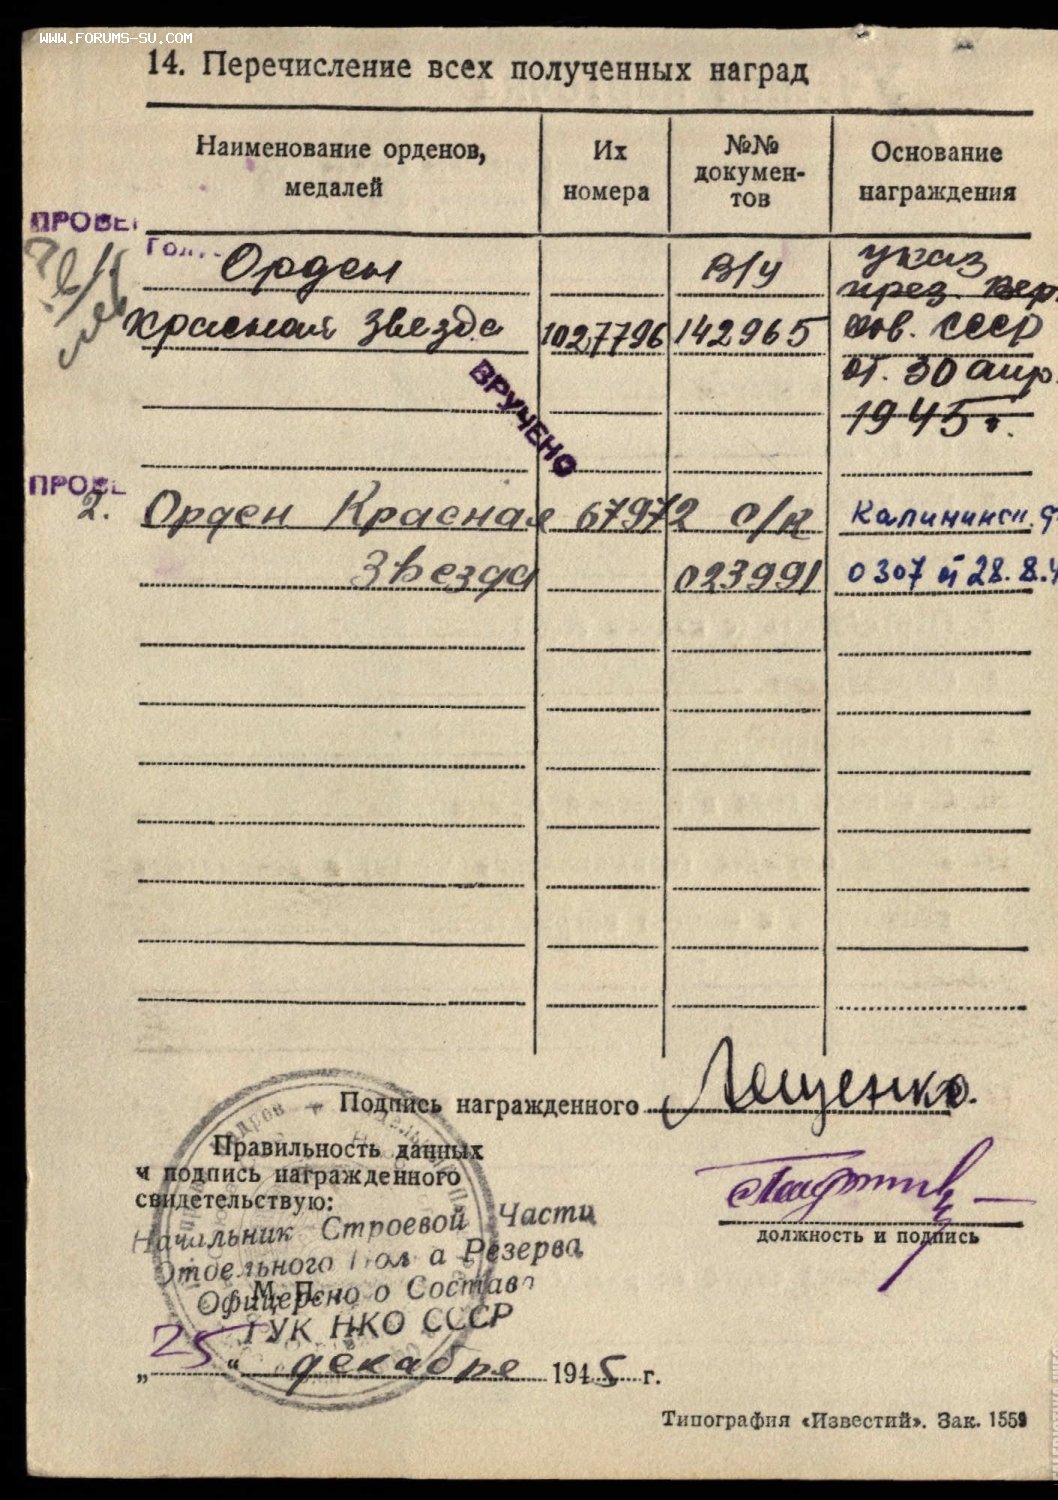 WWW.FORUMS-SU.COM
14. Перечисление всех полученных наград
Наименование орденов, медалей
Их номера
№№ докумен-
тов
Основание награждения
ПРОВЕ
Орден
В/У
указ
през. Вер.
Красная Звезда
1027796
142965
сов. СССР
от. 30 апр.
1945 г.
ВРУЧЕНО
ПРОВЕ
2. Орден Красная
67972
О/К
Калининск. ф
Звезда
023991
0307 от 28.8.4
Подпись награжденного
Лещенко.
Правильность данных
и подпись награжденного
свидетельствую:
Начальник Строевой Части
Отдельного Пол а Резерва
Офицерско о Состава
М. П.
ГУК НКО СССР
должность и подпись
„ 25 “ декабря 1945 г.
Типография «Известий». Зак. 1559